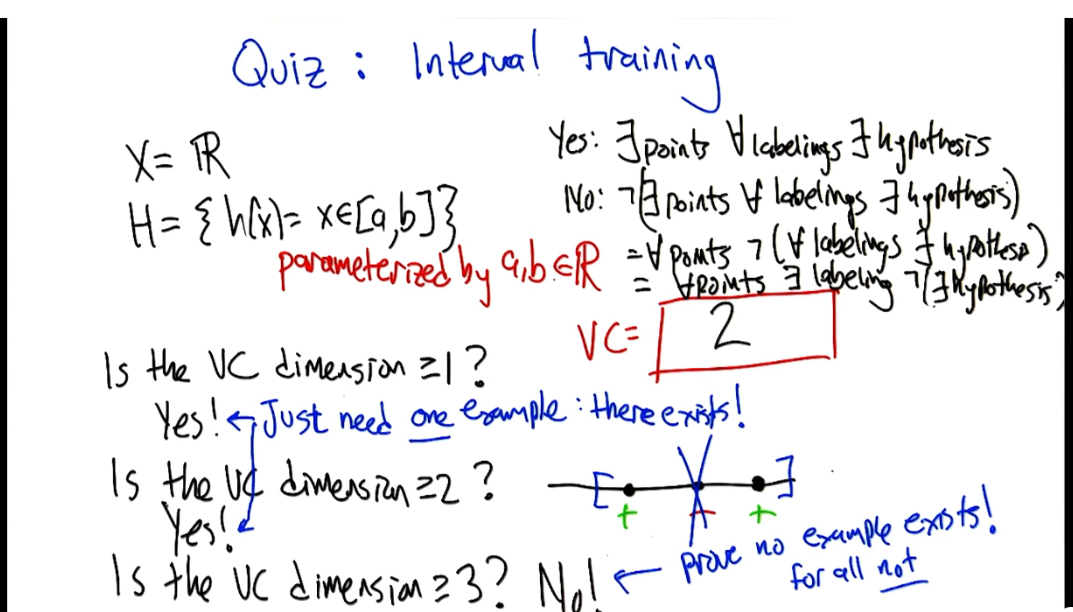 Quiz : Interval training
X = ℝ
H = { h(x) = x∈[a,b] }
parameterized by a,b ∈ ℝ
Yes: ∃ points ∀ labelings ∃ hypothesis
No: ¬(∃ points ∀ labelings ∃ hypothesis)
= ∀ points ¬ (∀ labelings ∃ hypothesis)
= ∀ points ∃ labeling ¬(∃ hypothesis)
VC= 2
Is the VC dimension ≥1?
Yes! ← Just need one example: there exists!
Is the VC dimension ≥2?
Yes!
[ ]
+ - +
Is the VC dimension ≥3? No! ← prove no example exists!
for all not